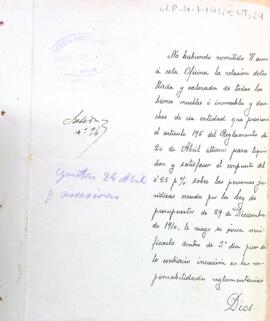 No habiendo remitido V. aun
á esta Oficina la relacion deta-
llada y valorada de todos los
bienes muebles é inmuebles y dere-
chos de esa entidad que previene
el articulo 196 del Reglamento de
20 de Abril último para liqui-
dar y satisfacer el impuesto del
0'25 p% sobre las personas ju-
rídicas creado por la Ley de
presupuestos de 29 de Diciembre
de 1910, le ruego se sirva veri-
ficarlo dentro de 3º dia pues de
lo contrario incurrirá en las res-
ponsabilidades reglamentarias
Dios
nº 96
24 Abril
y sucesivas